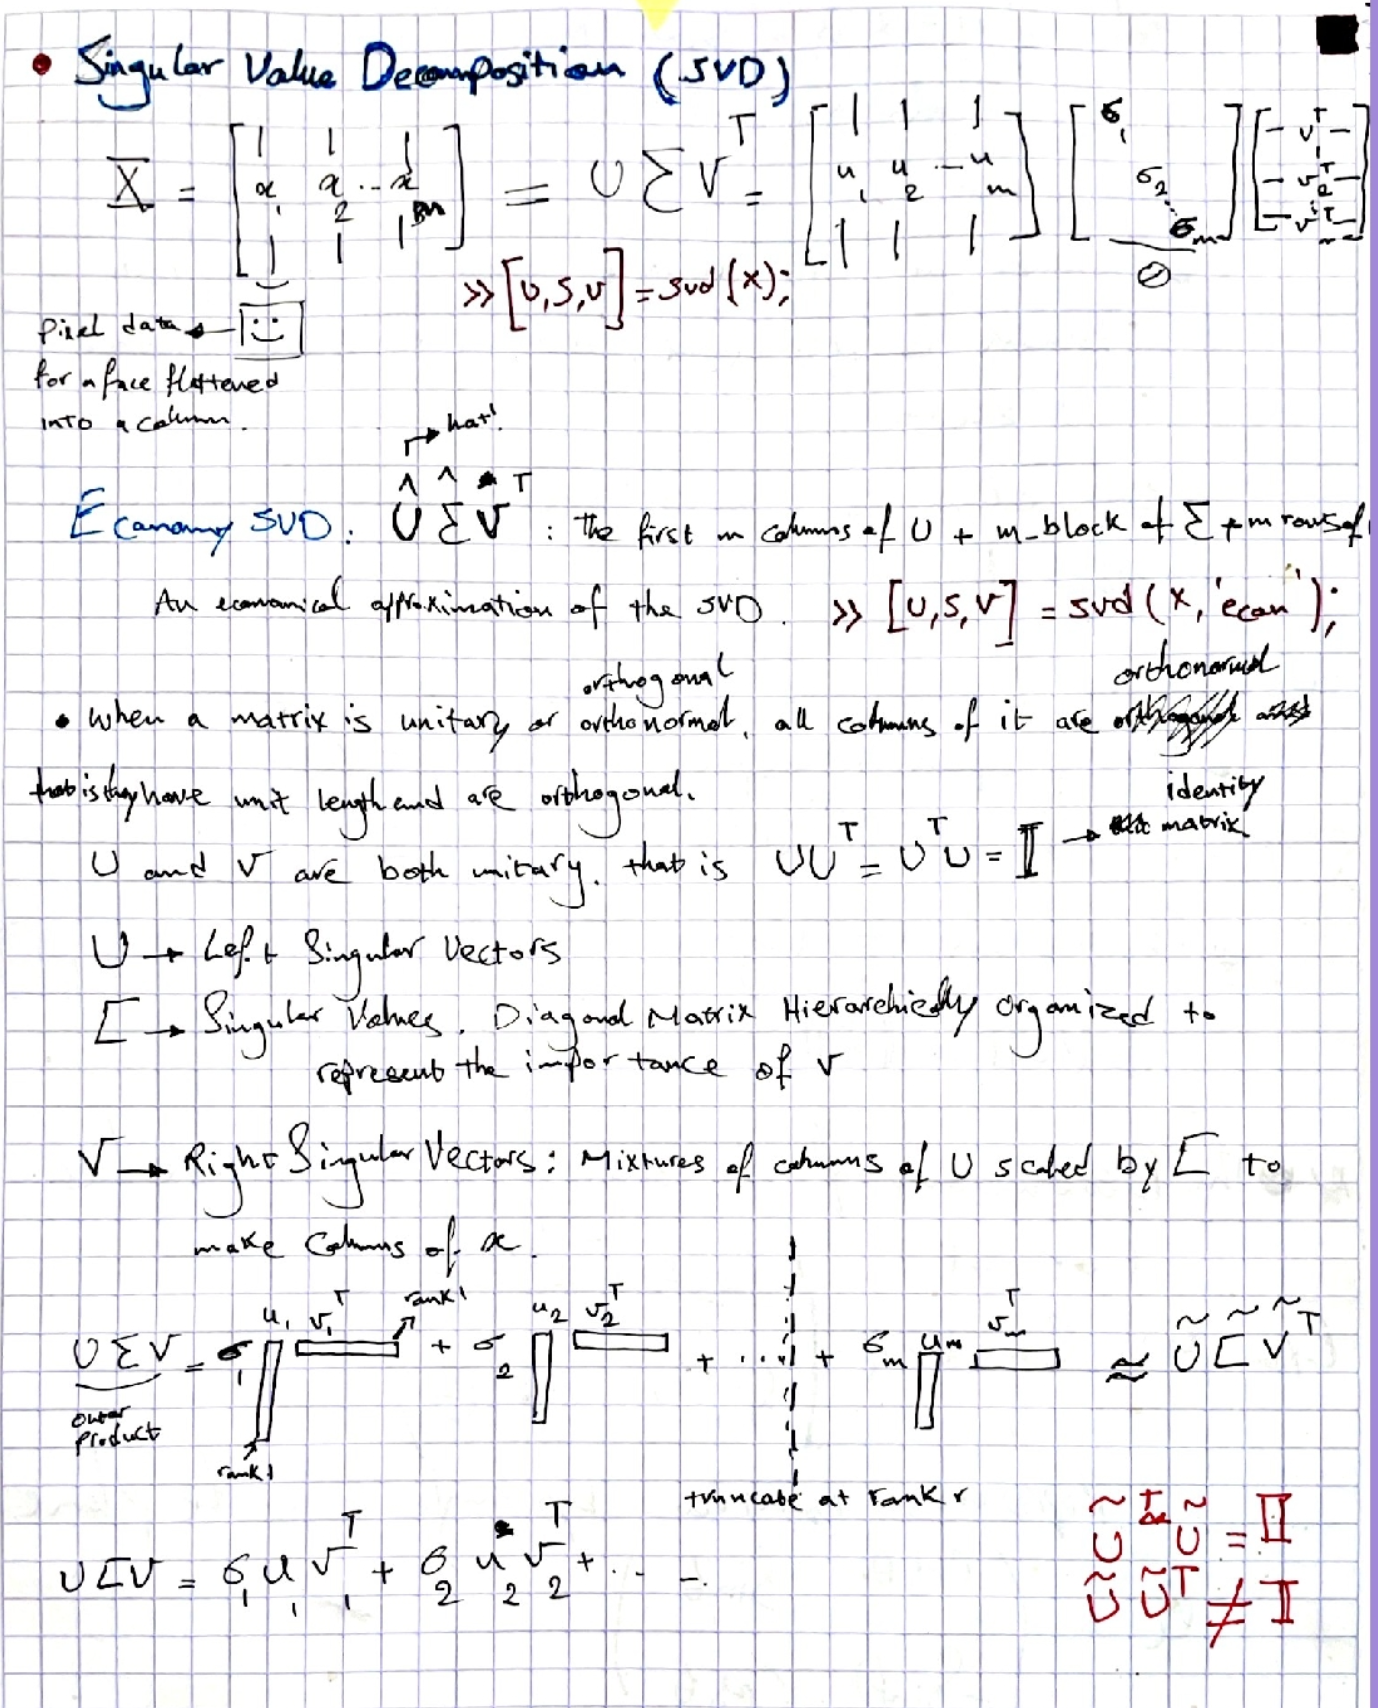 • Singular Value Decomposition (SVD)
X = [x₁ x₂ ... xₘ] = U Σ Vᵀ = [u₁ u₂ ... uₘ] [σ₁ σ₂ ... σₘ 0] [v₁ᵀ v₂ᵀ vᵀₘ]
>> [U,S,V] = svd (x);
Pixel data
for a face flattened
into a column.
hat!
Economy SVD: Û Σ̂ Vᵀ : the first m columns of U + m_block of Σ + m rows of
An economical approximation of the SVD. >> [U,S,V] = svd (X, 'econ');
orthogonal orthonormal
• When a matrix is unitary or orthonormal, all columns of it are
that is they have unit length and are orthogonal.
identity
U and V are both unitary. that is UUᵀ = UᵀU = I → matrix
U → Left Singular Vectors
Σ → Singular Values. Diagonal Matrix Hierarchically organized to
represent the importance of V
V → Right Singular Vectors: Mixtures of columns of U scaled by Σ to
make Columns of x.
UΣV = σ₁ u₁ v₁ᵀ rank 1 + σ₂ u₂ v₂ᵀ + .... + σₘ uₘ vₘᵀ ≈ Ũ Σ Ṽᵀ
outer
product
rank 1
truncate at rank r
UΣV = σ₁u₁v₁ᵀ + σ₂u₂v₂ᵀ + ....
ŨᵀŨ = I
ŨŨᵀ ≠ I